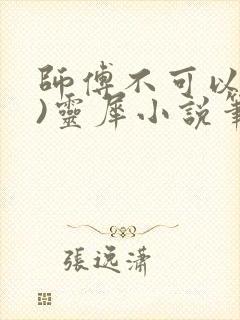 師傅不可以
)靈犀小說筆
張逸瀟